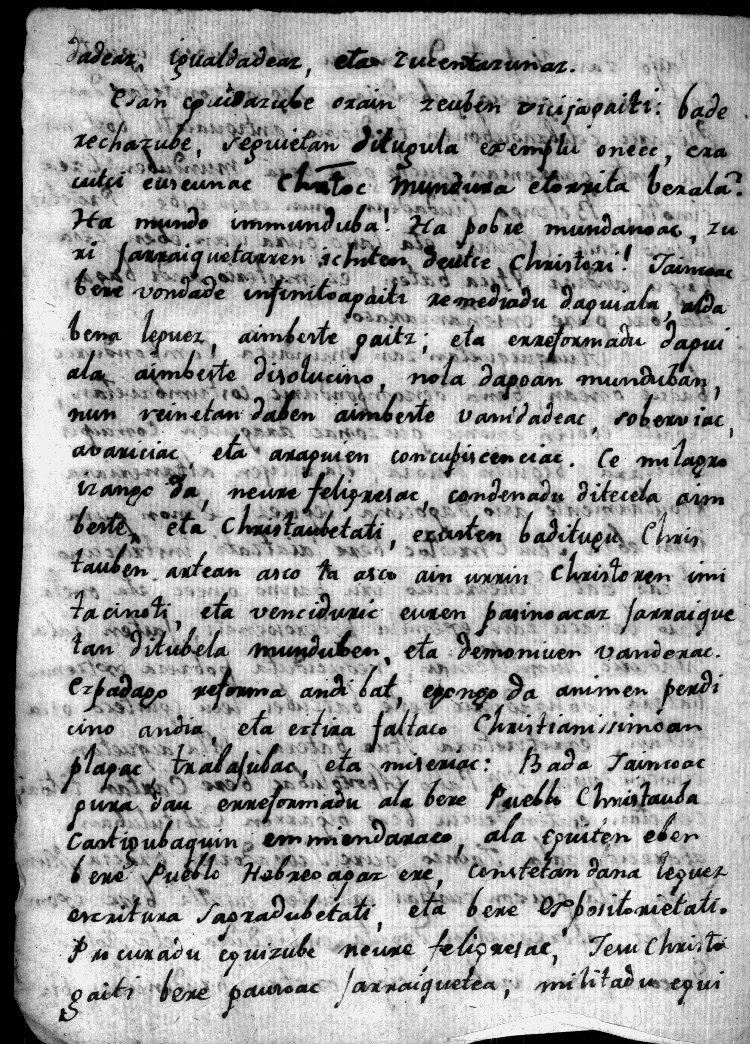 dadeaz, igualdadeaz, eta zucentazunaz.
Esan eguidazube orain zeuben vicijagaiti: bade
rechazube, seguietan ditugula exemplu onecc, era
cutci euscunac Chrstoc Mundura etorrita bezala?
Ha mundo immunduba! Ha pobre mundanoac, zu
ri jarraiquetarren ichiten deutce Christori! Jaincoac
bere vondade infinitoagaiti remediadu daguiala, alda
bena leguez, aimberte gaitz; eta erreformadu dagui
ala aimberte disolucino, nola dagoan munduban,
nun reinetan daben aimberte vanidadeac, soberviac,
avariciac eta araguien concupiscenciac. Ce milagro
izango da, neure feligresac, condenadu ditecela aim
berte, eta Christaubetati, ezisten baditugu Chris
tauben artean asco ta asco ain urrin Christoren imi
tacinoti, eta venciduric euren pasinoacaz jarraique
tan ditubela munduben, eta demoniuen vanderac.
Ezpadago reforma andi bat, egongo da animen perdi
cino andia, eta eztira faltaco Christianissimoan
plagac trabajubac, eta miseriac: Bada Jaincoac
gura dau erreformadu ala bere Pueblo Christauba
Castigubaquin emmiendaraco, ala eguiten eben
bere Pueblo Hebreoagaz ere, constetan dana leguez
escritura sagradubetati, eta bere Espositorietati.
Procuradu eguizube neure feligresac, Jesu Christo
gaiti bere pausoac jarraiquetea, militadu egui